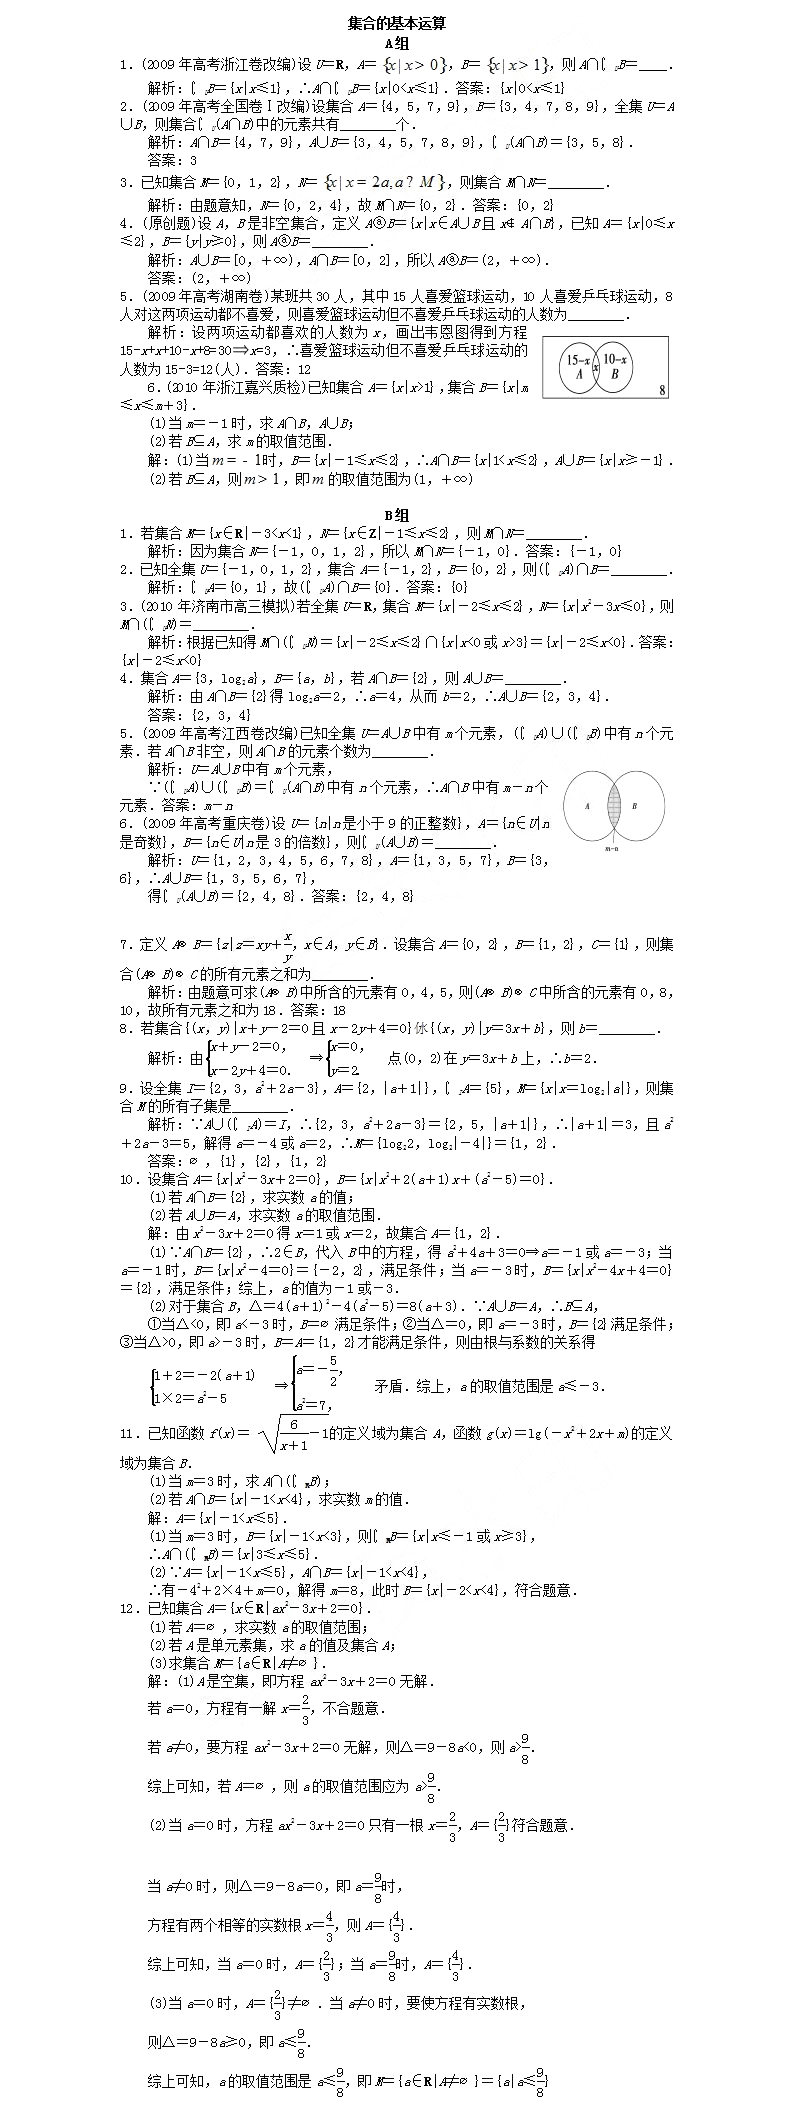 集合的基本运算
A组
1.(2009年高考浙江卷改编)设U=R,A={x|x>0},B={x|x>1},则A∩∁UB=____.
解析:∁UB={x|x≤1},∴A∩∁UB={x|0<x≤1}.答案:{x|0<x≤1}
2.(2009年高考全国卷Ⅰ改编)设集合A={4,5,7,9},B={3,4,7,8,9},全集U=A
∪B,则集合∁U(A∩B)中的元素共有________个.
解析:A∩B={4,7,9},A∪B={3,4,5,7,8,9},∁U(A∩B)={3,5,8}.
答案:3
3.已知集合M={0,1,2},N={x|x=2a,a? M},则集合M∩N=________.
解析:由题意知,N={0,2,4},故M∩N={0,2}.答案:{0,2}
4.(原创题)设A,B是非空集合,定义AⓐB={x|x∈A∪B且x∉A∩B},已知A={x|0≤x
≤2},B={y|y≥0},则AⓐB=________.
解析:A∪B=[0,+∞),A∩B=[0,2],所以AⓐB=(2,+∞).
答案:(2,+∞)
5.(2009年高考湖南卷)某班共30人,其中15人喜爱篮球运动,10人喜爱乒乓球运动,8
人对这两项运动都不喜爱,则喜爱篮球运动但不喜爱乒乓球运动的人数为________.
解析:设两项运动都喜欢的人数为x,画出韦恩图得到方程
15-x+x+10-x+8=30⇒x=3,∴喜爱篮球运动但不喜爱乒乓球运动的
人数为15-3=12(人).答案:12
15-x x 10-x
A B
8
6.(2010年浙江嘉兴质检)已知集合A={x|x>1},集合B={x|m
≤x≤m+3}.
(1)当m=-1时,求A∩B,A∪B;
(2)若B⊆A,求m的取值范围.
解:(1)当m=-1时,B={x|-1≤x≤2},∴A∩B={x|1<x≤2},A∪B={x|x≥-1}.
(2)若B⊆A,则m>1,即m的取值范围为(1,+∞)
B组
1.若集合M={x∈R|-3<x<1},N={x∈Z|-1≤x≤2},则M∩N=________.
解析:因为集合N={-1,0,1,2},所以M∩N={-1,0}.答案:{-1,0}
2.已知全集U={-1,0,1,2},集合A={-1,2},B={0,2},则(∁UA)∩B=________.
解析:∁UA={0,1},故(∁UA)∩B={0}.答案:{0}
3.(2010年济南市高三模拟)若全集U=R,集合M={x|-2≤x≤2},N={x|x²-3x≤0},则
M∩(∁UN)=________.
解析:根据已知得M∩(∁UN)={x|-2≤x≤2}∩{x|x<0或x>3}={x|-2≤x<0}.答案:
{x|-2≤x<0}
4.集合A={3,log₂a},B={a,b},若A∩B={2},则A∪B=________.
解析:由A∩B={2}得log₂a=2,∴a=4,从而b=2,∴A∪B={2,3,4}.
答案:{2,3,4}
5.(2009年高考江西卷改编)已知全集U=A∪B中有m个元素,(∁UA)∪(∁UB)中有n个元
素.若A∩B非空,则A∩B的元素个数为________.
解析:U=A∪B中有m个元素,
∵(∁UA)∪(∁UB)=∁U(A∩B)中有n个元素,∴A∩B中有m-n个
元素.答案:m-n
A B
m-n
6.(2009年高考重庆卷)设U={n|n是小于9的正整数},A={n∈U|n
是奇数},B={n∈U|n是3的倍数},则∁U(A∪B)=________.
解析:U={1,2,3,4,5,6,7,8},A={1,3,5,7},B={3,
6},∴A∪B={1,3,5,6,7},
得∁U(A∪B)={2,4,8}.答案:{2,4,8}
7.定义A⊗B={z|z=xy+x/y,x∈A,y∈B}.设集合A={0,2},B={1,2},C={1},则集
合(A⊗B)⊗C的所有元素之和为________.
解析:由题意可求(A⊗B)中所含的元素有0,4,5,则(A⊗B)⊗C中所含的元素有0,8,
10,故所有元素之和为18.答案:18
8.若集合{(x,y)|x+y-2=0且x-2y+4=0}{(x,y)|y=3x+b},则b=________.
解析:由{x+y-2=0, x-2y+4=0. ⇒{x=0, y=2. 点(0,2)在y=3x+b上,∴b=2.
9.设全集I={2,3,a²+2a-3},A={2,|a+1|},∁IA={5},M={x|x=log₂|a|},则集
合M的所有子集是________.
解析:∵A∪(∁IA)=I,∴{2,3,a²+2a-3}={2,5,|a+1|},∴|a+1|=3,且a²
+2a-3=5,解得a=-4或a=2,∴M={log₂2,log₂|-4|}={1,2}.
答案:∅,{1},{2},{1,2}
10.设集合A={x|x²-3x+2=0},B={x|x²+2(a+1)x+(a²-5)=0}.
(1)若A∩B={2},求实数a的值;
(2)若A∪B=A,求实数a的取值范围.
解:由x²-3x+2=0得x=1或x=2,故集合A={1,2}.
(1)∵A∩B={2},∴2∈B,代入B中的方程,得a²+4a+3=0⇒a=-1或a=-3;当
a=-1时,B={x|x²-4=0}={-2,2},满足条件;当a=-3时,B={x|x²-4x+4=0}
={2},满足条件;综上,a的值为-1或-3.
(2)对于集合B,△=4(a+1)²-4(a²-5)=8(a+3).∵A∪B=A,∴B⊆A,
①当△<0,即a<-3时,B=∅满足条件;②当△=0,即a=-3时,B={2}满足条件;
③当△>0,即a>-3时,B=A={1,2}才能满足条件,则由根与系数的关系得
{1+2=-2(a+1) 1×2=a²-5 ⇒{a=-5/2, a²=7, 矛盾.综上,a的取值范围是a≤-3.
11.已知函数f(x)=√(6/(x+1)-1)的定义域为集合A,函数g(x)=lg(-x²+2x+m)的定义
域为集合B.
(1)当m=3时,求A∩(∁RB);
(2)若A∩B={x|-1<x<4},求实数m的值.
解:A={x|-1<x≤5}.
(1)当m=3时,B={x|-1<x<3},则∁RB={x|x≤-1或x≥3},
∴A∩(∁RB)={x|3≤x≤5}.
(2)∵A={x|-1<x≤5},A∩B={x|-1<x<4},
∴有-4²+2×4+m=0,解得m=8,此时B={x|-2<x<4},符合题意.
12.已知集合A={x∈R|ax²-3x+2=0}.
(1)若A=∅,求实数a的取值范围;
(2)若A是单元素集,求a的值及集合A;
(3)求集合M={a∈R|A≠∅}.
解:(1)A是空集,即方程ax²-3x+2=0无解.
若a=0,方程有一解x=2/3,不合题意.
若a≠0,要方程ax²-3x+2=0无解,则△=9-8a<0,则a>9/8.
综上可知,若A=∅,则a的取值范围应为a>9/8.
(2)当a=0时,方程ax²-3x+2=0只有一根x=2/3,A={2/3}符合题意.
当a≠0时,则△=9-8a=0,即a=9/8时,
方程有两个相等的实数根x=4/3,则A={4/3}.
综上可知,当a=0时,A={2/3};当a=9/8时,A={4/3}.
(3)当a=0时,A={2/3}≠∅.当a≠0时,要使方程有实数根,
则△=9-8a≥0,即a≤9/8.
综上可知,a的取值范围是a≤9/8,即M={a∈R|A≠∅}={a|a≤9/8}